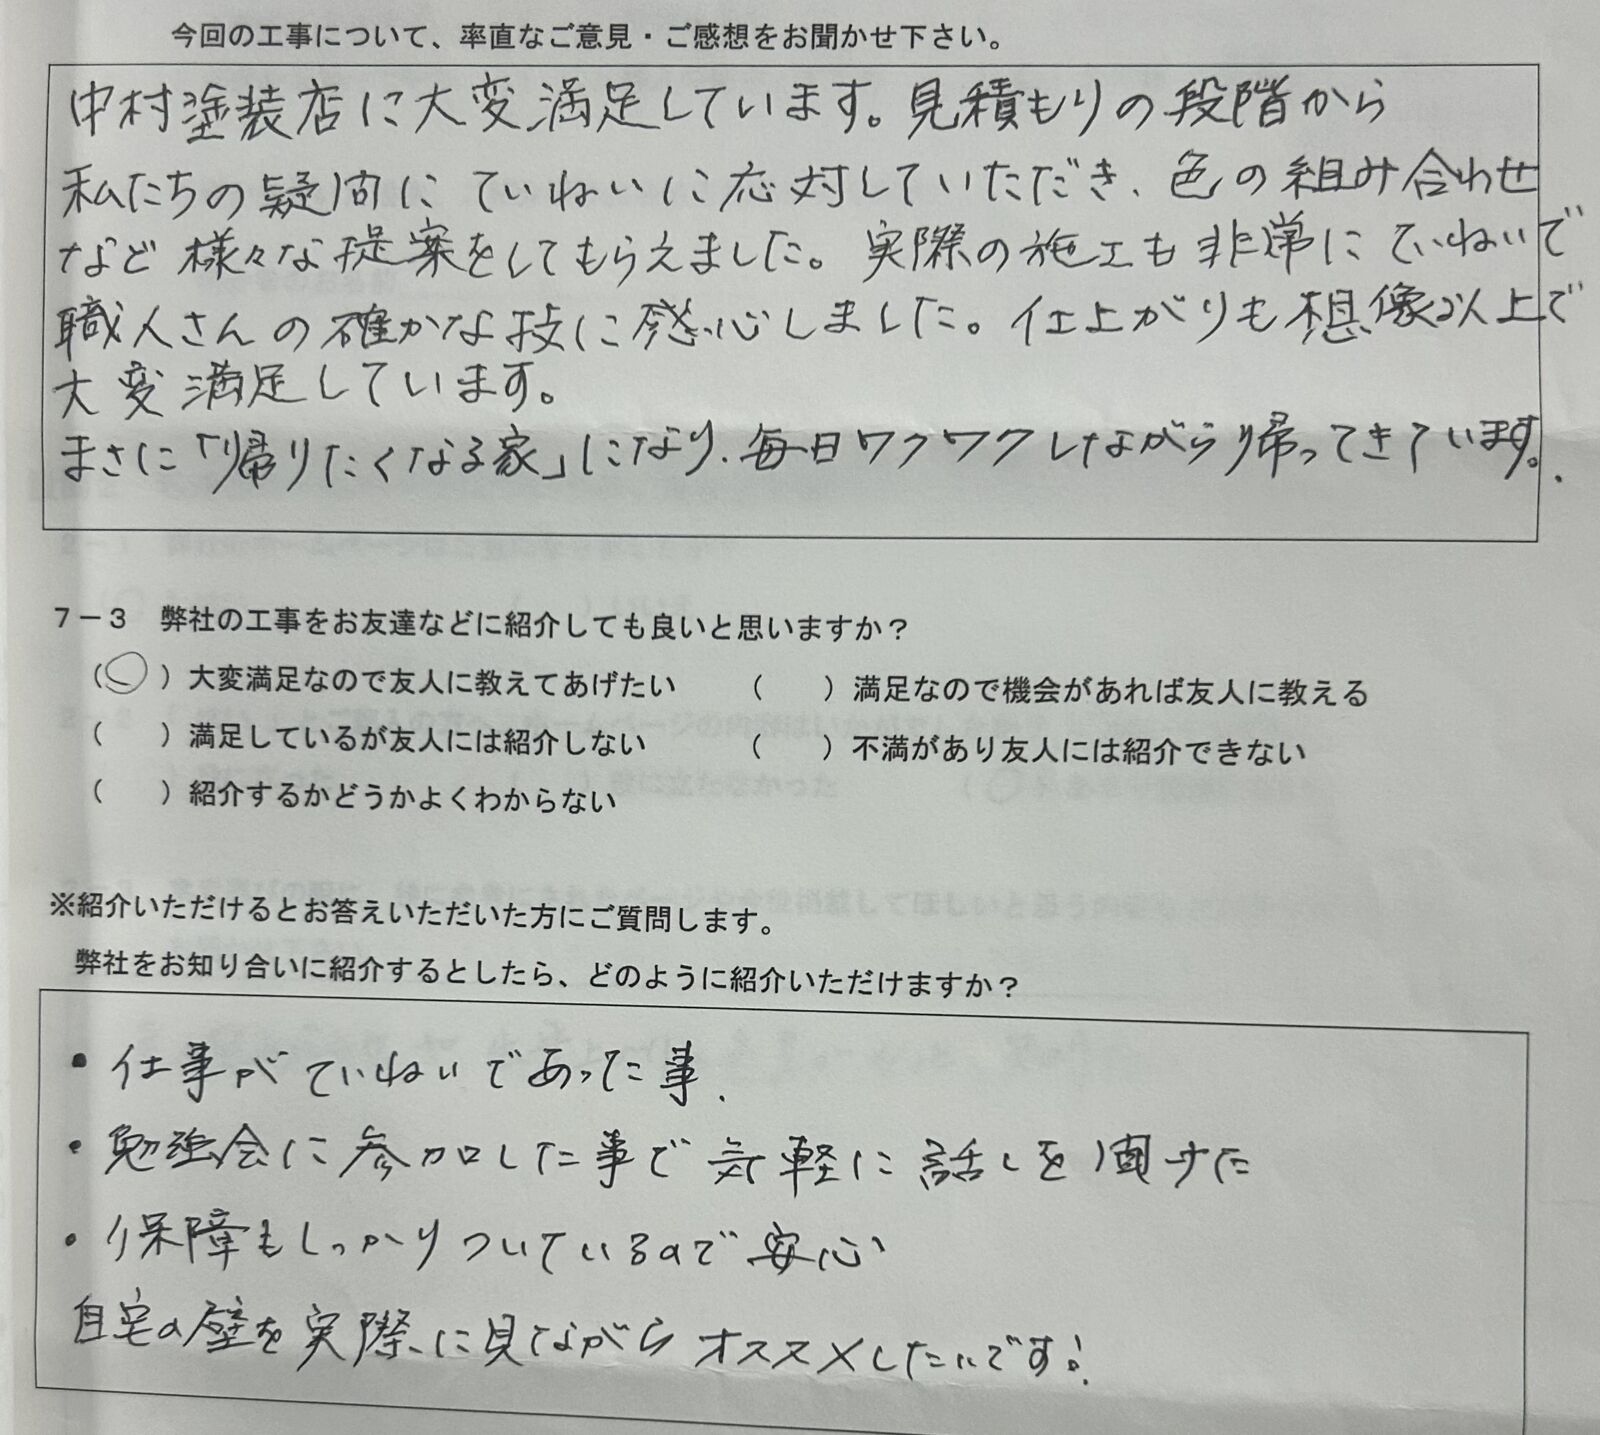 今回の工事について、率直なご意見・ご感想をお聞かせ下さい。
中村塗装店に大変満足しています。見積もりの段階から
私たちの疑問にていねいに応対していただき、色の組み合わせ
など様々な提案をしてもらえました。実際の施工も非常にていねいで
職人さんの確かな技に感心しました。仕上がりも想像以上で
大変満足しています。
まさに「帰りたくなる家」になり、毎日ワクワクしながら帰ってきています。
7－3 弊社の工事をお友達などに紹介しても良いと思いますか？
（○）大変満足なので友人に教えてあげたい （ ）満足なので機会があれば友人に教える
（ ）満足しているが友人には紹介しない （ ）不満があり友人には紹介できない
（ ）紹介するかどうかよくわからない
※紹介いただけるとお答えいただいた方にご質問します。
弊社をお知り合いに紹介するとしたら、どのように紹介いただけますか？
・仕事がていねいであった事．
・勉強会に参加した事で気軽に話しを聞けた
・保障もしっかりついているので安心
自宅の壁を実際に見ながらオススメしたいです！